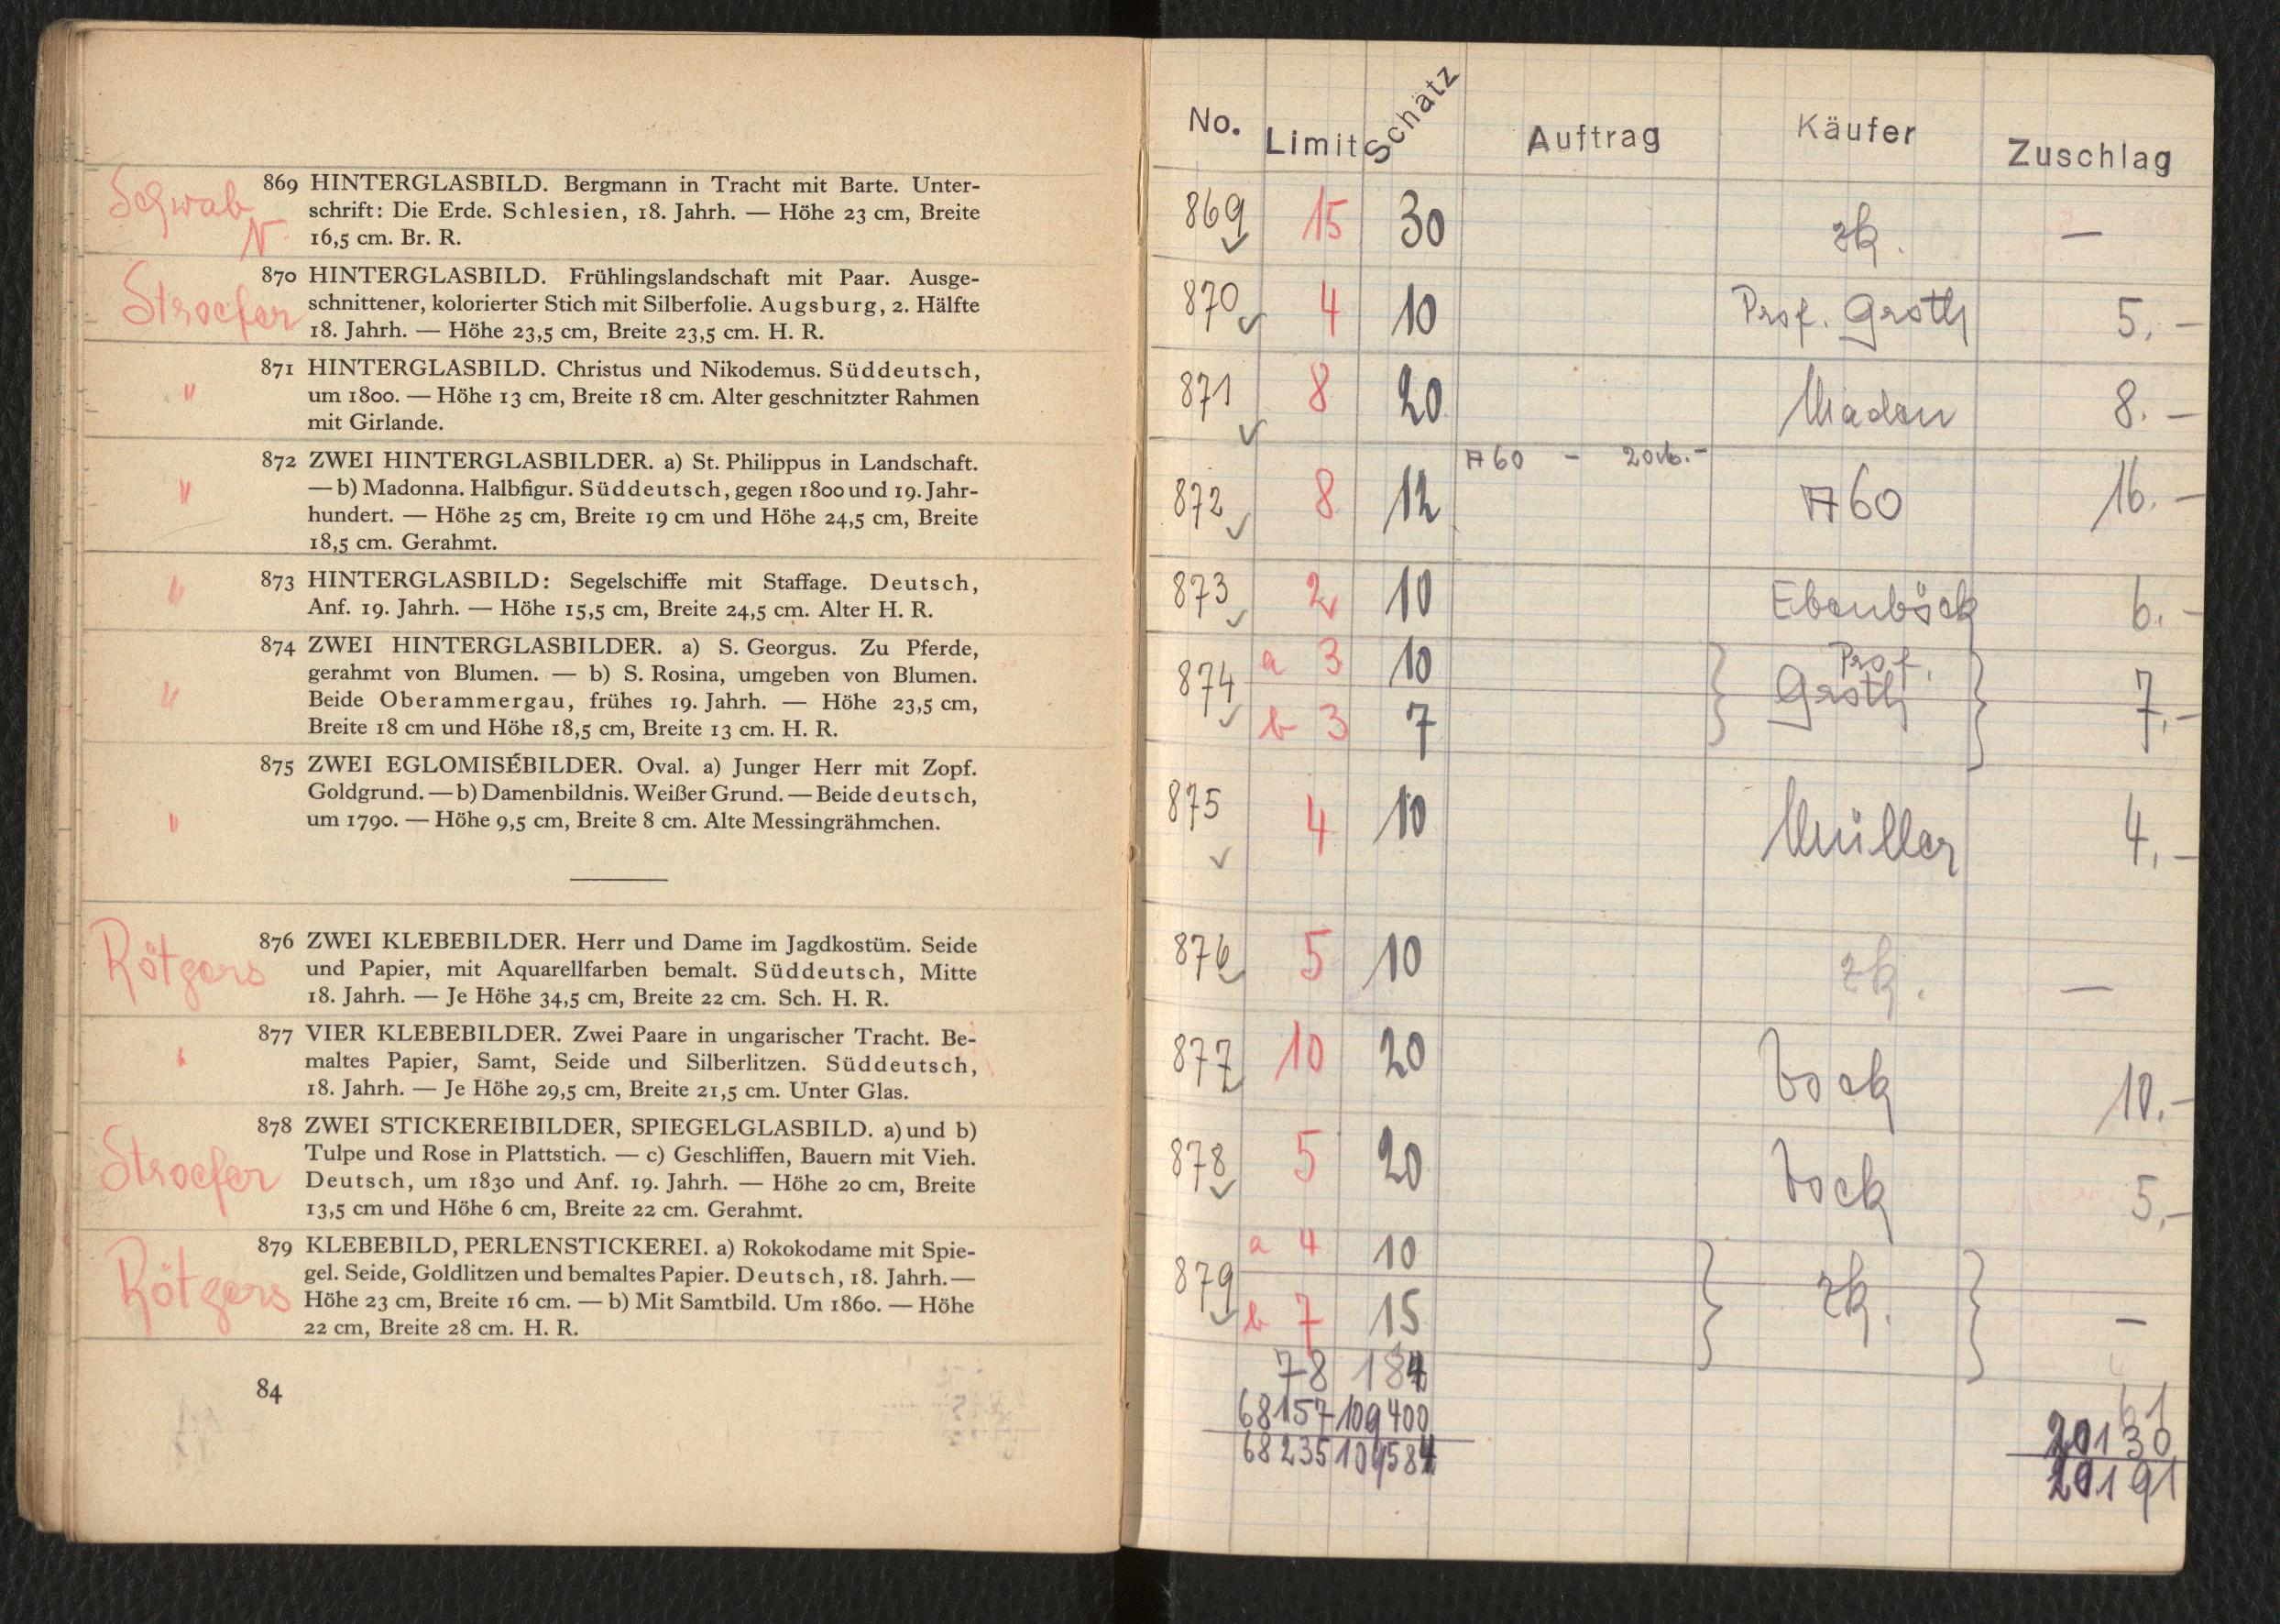 Schwab
N
869 HINTERGLASBILD. Bergmann in Tracht mit Barte. Unter-
schrift: Die Erde. Schlesien, 18. Jahrh. — Höhe 23 cm, Breite
16,5 cm. Br. R.
Stroefer
870 HINTERGLASBILD. Frühlingslandschaft mit Paar. Ausge-
schnittener, kolorierter Stich mit Silberfolie. Augsburg, 2. Hälfte
18. Jahrh. — Höhe 23,5 cm, Breite 23,5 cm. H. R.
"
871 HINTERGLASBILD. Christus und Nikodemus. Süddeutsch,
um 1800. — Höhe 13 cm, Breite 18 cm. Alter geschnitzter Rahmen
mit Girlande.
"
872 ZWEI HINTERGLASBILDER. a) St. Philippus in Landschaft.
— b) Madonna. Halbfigur. Süddeutsch, gegen 1800 und 19. Jahr-
hundert. — Höhe 25 cm, Breite 19 cm und Höhe 24,5 cm, Breite
18,5 cm. Gerahmt.
"
873 HINTERGLASBILD: Segelschiffe mit Staffage. Deutsch,
Anf. 19. Jahrh. — Höhe 15,5 cm, Breite 24,5 cm. Alter H. R.
"
874 ZWEI HINTERGLASBILDER. a) S. Georgus. Zu Pferde,
gerahmt von Blumen. — b) S. Rosina, umgeben von Blumen.
Beide Oberammergau, frühes 19. Jahrh. — Höhe 23,5 cm,
Breite 18 cm und Höhe 18,5 cm, Breite 13 cm. H. R.
"
875 ZWEI EGLOMISÉBILDER. Oval. a) Junger Herr mit Zopf.
Goldgrund. — b) Damenbildnis. Weißer Grund. — Beide deutsch,
um 1790. — Höhe 9,5 cm, Breite 8 cm. Alte Messingrähmchen.
Rötgers
876 ZWEI KLEBEBILDER. Herr und Dame im Jagdkostüm. Seide
und Papier, mit Aquarellfarben bemalt. Süddeutsch, Mitte
18. Jahrh. — Je Höhe 34,5 cm, Breite 22 cm. Sch. H. R.
"
877 VIER KLEBEBILDER. Zwei Paare in ungarischer Tracht. Be-
maltes Papier, Samt, Seide und Silberlitzen. Süddeutsch,
18. Jahrh. — Je Höhe 29,5 cm, Breite 21,5 cm. Unter Glas.
Stroefer
878 ZWEI STICKEREIBILDER, SPIEGELGLASBILD. a) und b)
Tulpe und Rose in Plattstich. — c) Geschliffen, Bauern mit Vieh.
Deutsch, um 1830 und Anf. 19. Jahrh. — Höhe 20 cm, Breite
13,5 cm und Höhe 6 cm, Breite 22 cm. Gerahmt.
Rötgers
879 KLEBEBILD, PERLENSTICKEREI. a) Rokokodame mit Spie-
gel. Seide, Goldlitzen und bemaltes Papier. Deutsch, 18. Jahrh. —
Höhe 23 cm, Breite 16 cm. — b) Mit Samtbild. Um 1860. — Höhe
22 cm, Breite 28 cm. H. R.
84
No. Limit Schätz Auftrag Käufer Zuschlag
869 15 30 zk. —
870 4 10 Prof. Groth 5.—
871 8 20 Madan 8.—
A60 - 20
872 8 12 A60 16.—
873 2 10 Ebenböck 6.—
874 a 3 10 Prof. Groth 7.—
b 3 7
875 4 10 Müller 4.—
876 5 10 zk. —
877 10 20 Bock 10.—
878 5 20 Bock 5.—
879 a 4 10 zk. —
b 7 15
78 184 61
68157 109400 20130
68235 109584 20191